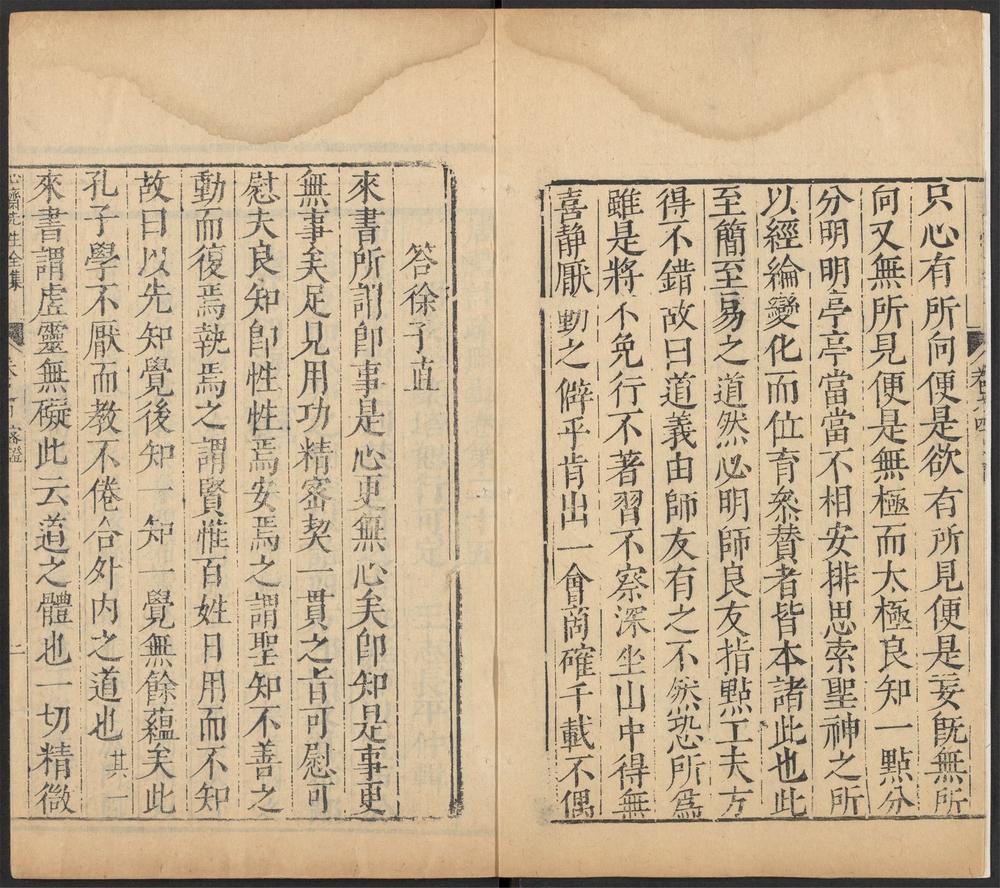 只心有所向便是欲有所見便是妄旣無所
向又無所見便是無極而太極良知一點分
分明明亭亭當當不相安排思索聖神之所
以經綸變化而位育叅賛者皆本諸此也此
至簡至易之道然必明師良友指點工夫方
得不錯故曰道義由師友有之不然恐所爲
雖是將不免行不著習不察深坐山中得無
喜静厭動之僻乎肯出一會商確千載不偶
答徐子直
來書所謂卽事是心更無心矣卽知是事更
無事矣足見用功精密契一貫之旨可慰可
慰夫良知卽性性焉安焉之謂聖知不善之
動而復焉執焉之謂賢惟百姓日用而不知
故曰以先知覺後知一知一覺無餘蘊矣此
孔子學不厭而教不倦合外内之道也 其一
來書謂虛靈無礙此云道之體也一切精微
心齋先生全集